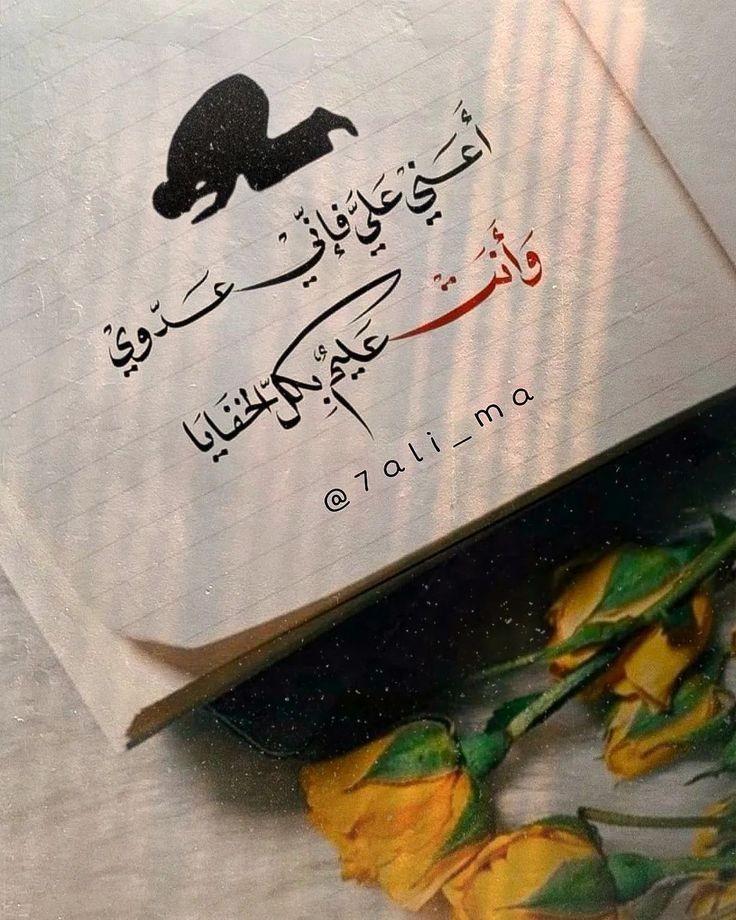 أَعَنِّي عَلَيَّ فَإِنِّي عَدُوِّي
وَأَنتَ عَلِيمٌ بِكُلِّ الخَفَايَا
@7ali_ma